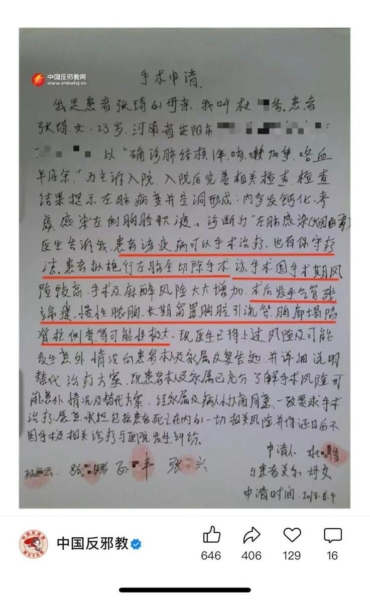 中国反邪教网
手术申请
我是患者张琦的母亲,我叫杜 香,患者
张琦,女,23岁,河南省安阳市
以"确诊肺结核 年,咳嗽加重,咯血
半月余"为主诉入院,入院后完善相关检查,检查
结果提示左肺病变并空洞形成,内多发钙化,考
虑感染左侧胸腔积液。诊断为"左肺感染
医生告诉我,患者该疾病可以手术治疗,也有保守疗
法,患者拟施行左肺全切除手术,该手术围手术期风
险较高,手术及麻醉风险大大增加,术后发生支气管残
端瘘,慢性脓胸,长期留置胸腔引流管,胸廓塌陷
等可能性极大。现医生已将上述风险及可能
发生意外情况向患者本人及家属反复告知,并详细说明
替代治疗方案,现患者本人及家属已充分了解手术风险可
能意外情况及替代方案,经家属及病人协商同意,一致要求手术
治疗,愿意承担包括患者死亡在内的一切相关风险并保证日后不
因手术及相关诊疗与医院发生纠纷。
申请人:杜 香
与患者关系:母女
申请时间:2018.8.4
中国反邪教
646
406
129
16